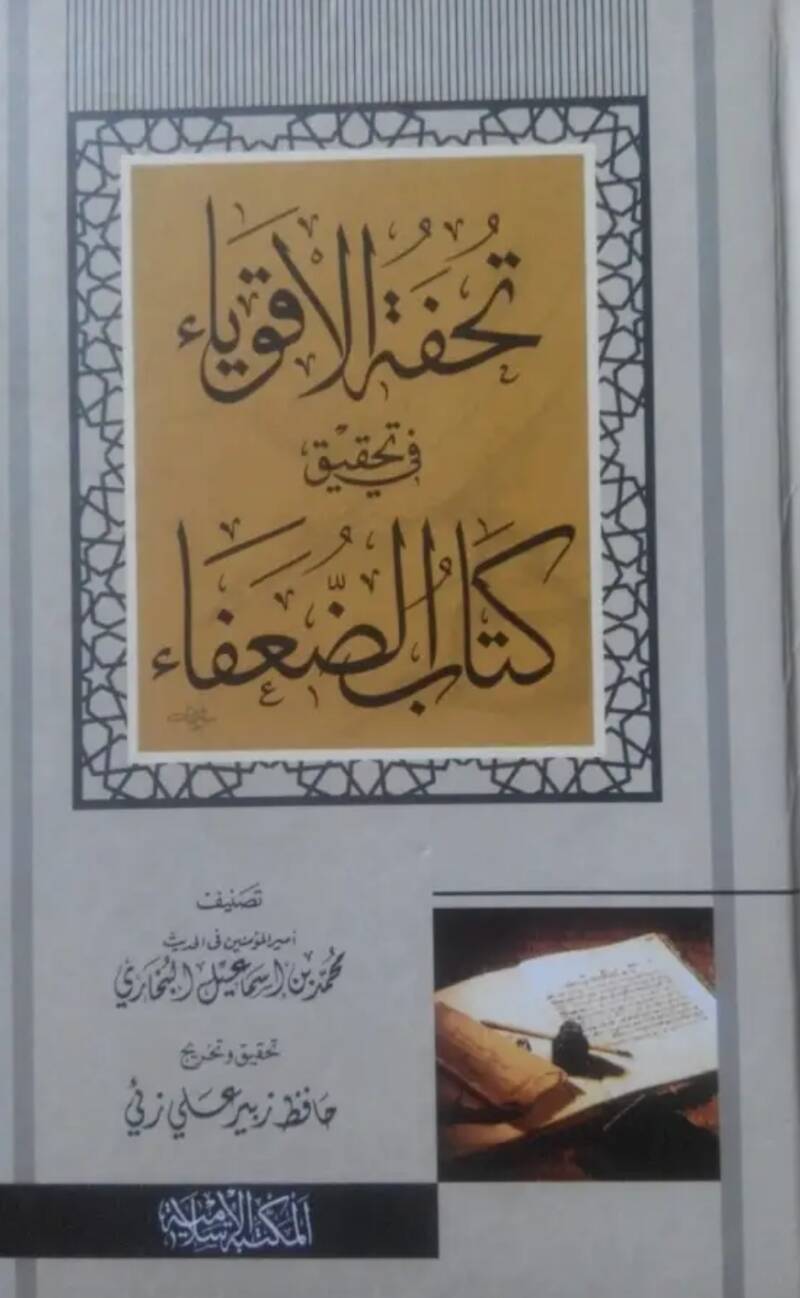 تُحْفَةُ الْأَقْوِيَاء
في تحقيق
كِتَابُ الضُّعَفَاء
تصنيف
أمير المؤمنين في الحديث
محمد بن اسماعيل البخاري
تحقيق و تخريج
حافظ زبير علي زئي
المكتبة الإسلامية